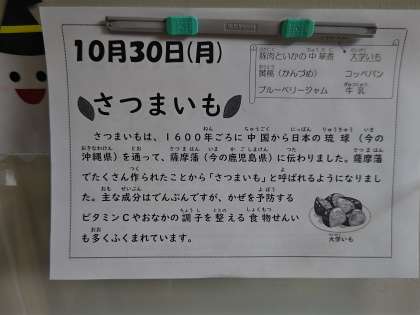 10月30日(月)
豚肉といかの中華煮 大学いも
黄桃(かんづめ) コッペパン
ブルーベリージャム 牛乳
さつまいも
さつまいもは、1600年ごろに中国から日本の琉球(今の
沖縄県)を通って、薩摩藩(今の鹿児島県)に伝わりました。薩摩藩
でたくさん作られたことから「さつまいも」と呼ばれるようになりまし
た。主な成分はでんぷんですが、かぜを予防する
ビタミンCやおなかの調子を整える食物せんい
も多くふくまれています。
大学いも